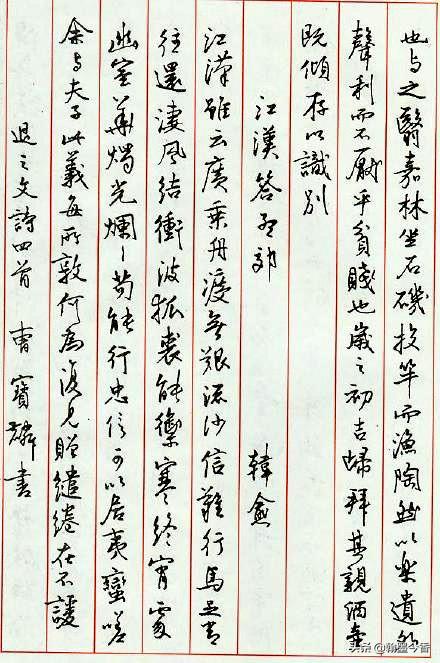 也与之翳嘉林坐石磯投竿而漁陶然以樂遺外
聲利而不厭乎貧賤也歲之初吉歸拜其親酒壺
既傾序以識別
江漢答孟郊 韓愈
江漢雖云廣乘舟渡無艱流沙信難行馬足常
往還淒風結衝波狐裘能禦寒終宵處
幽室華燭光爛〻苟能行忠信可以居夷蠻嗟
余与夫子此義每所敦何為復見贈繾綣在不諼
退之文詩四首 曹寶麟書
头条 @翰墨今香